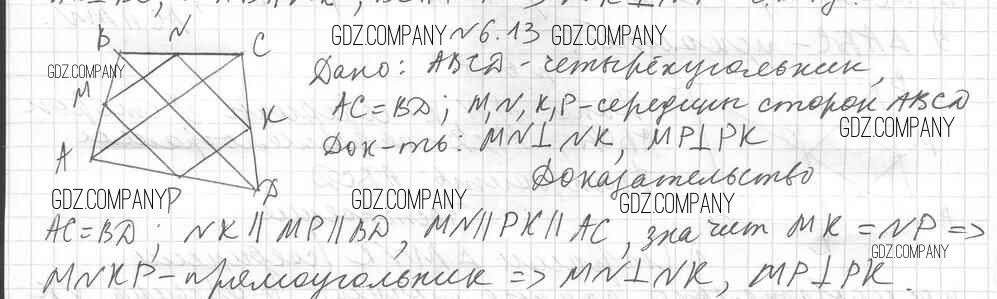 GDZ.COMPANY №6.13 GDZ.COMPANY
B N C
GDZ.COMPANY
Дано: ABCD - четырёхугольник,
M
AC=BD; M,N,K,P-середины сторон ABCD
K
GDZ.COMPANY
A
Док-ть: MN⊥NK, MP⊥PK
P D
Доказательство
GDZ.COMPANY GDZ.COMPANY GDZ.COMPANY
AC=BD; NK∥MP∥BD, MN∥PK∥AC, значит MK=NP=>
GDZ.COMPANY
MNKP-прямоугольник => MN⊥NK, MP⊥PK.